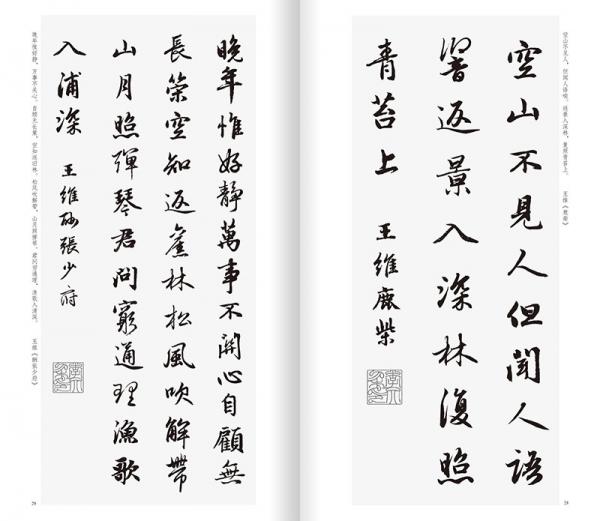 空山不见人，但闻人语响。返景入深林，复照青苔上。 王维《鹿柴》
空山不見人但聞人語
響返景入深林復照
青苔上 王維鹿柴
28
晚年惟好靜萬事不關心自顧無
長策空知返舊林松風吹解帶
山月照彈琴君問窮通理漁歌
入浦深 王維酬張少府
晚年惟好静，万事不关心。自顾无长策，空知返旧林。松风吹解带，山月照弹琴。君问穷通理，渔歌入浦深。 王维《酬张少府》
29